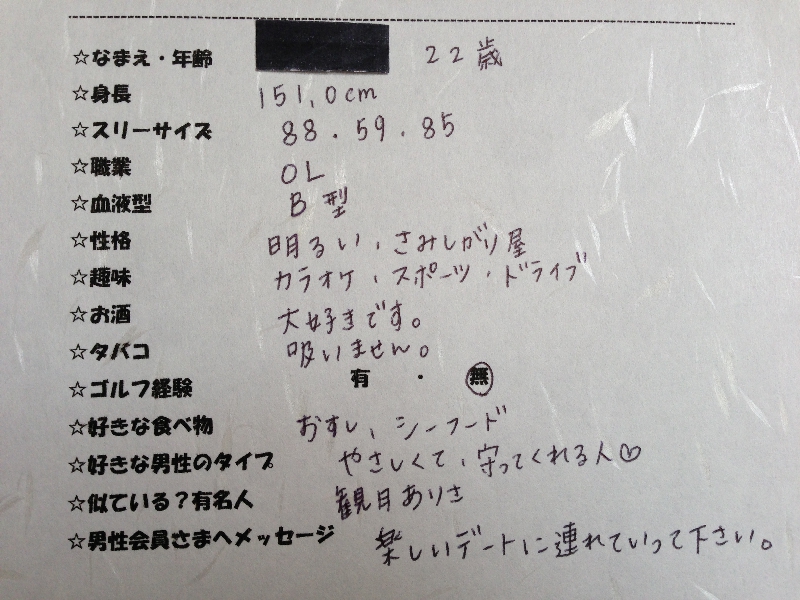 ☆なまえ・年齢 22歳
☆身長 151.0cm
☆スリーサイズ 88.59.85
☆職業 OL
☆血液型 B型
☆性格 明るい、さみしがり屋
☆趣味 カラオケ、スポーツ・ドライブ
☆お酒 大好きです。
☆タバコ 吸いません。
☆ゴルフ経験 有・無
☆好きな食べ物 おすし、シーフード
☆好きな男性のタイプ やさしくて、守ってくれる人♡
☆似ている?有名人 観月ありさ
☆男性会員さまへメッセージ 楽しいデートに連れていって下さい。